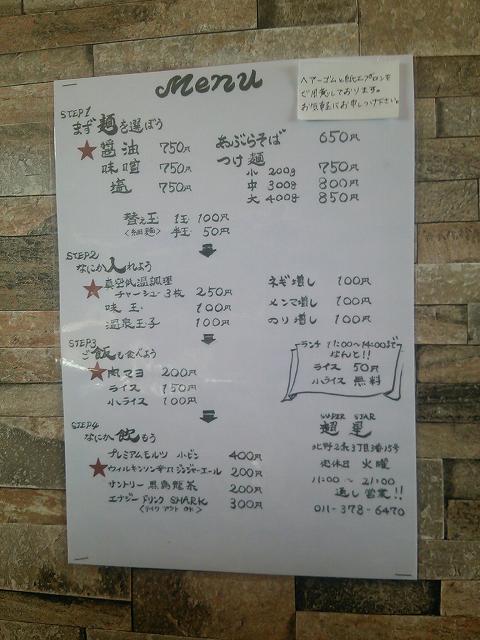 Menu
ヘアーゴムと紙エプロンを
ご用意しております。
お気軽にお申しつけ下さい。
STEP1
まず麺を選ぼう
★醤油 750円
味噌 750円
塩 750円
あぶらそば 650円
つけ麺
小 200g 750円
中 300g 800円
大 400g 850円
替え玉 1玉 100円
<細麺> 半玉 50円
STEP2
なにか入れよう
★真空低温調理
チャーシュー3枚 250円
味玉 100円
温泉玉子 100円
ネギ増し 100円
メンマ増し 100円
のり増し 100円
STEP3
ご飯も食べよう
★肉マヨ 200円
ライス 150円
小ライス 100円
ランチ 11:00~14:00まで
なんと!!
ライス 50円
小ライス 無料
STEP4
なにか飲もう
プレミアムモルツ 小ビン 400円
★ウィルキンソン辛口ジンジャーエール 200円
サントリー黒烏龍茶 200円
エナジードリンク SHARK 300円
<テイクアウト OK>
SUPER STAR
超星
北野2条3丁目3番15号
定休日 火曜
11:00 ~ 21:00
通し営業!!
011-378-6470